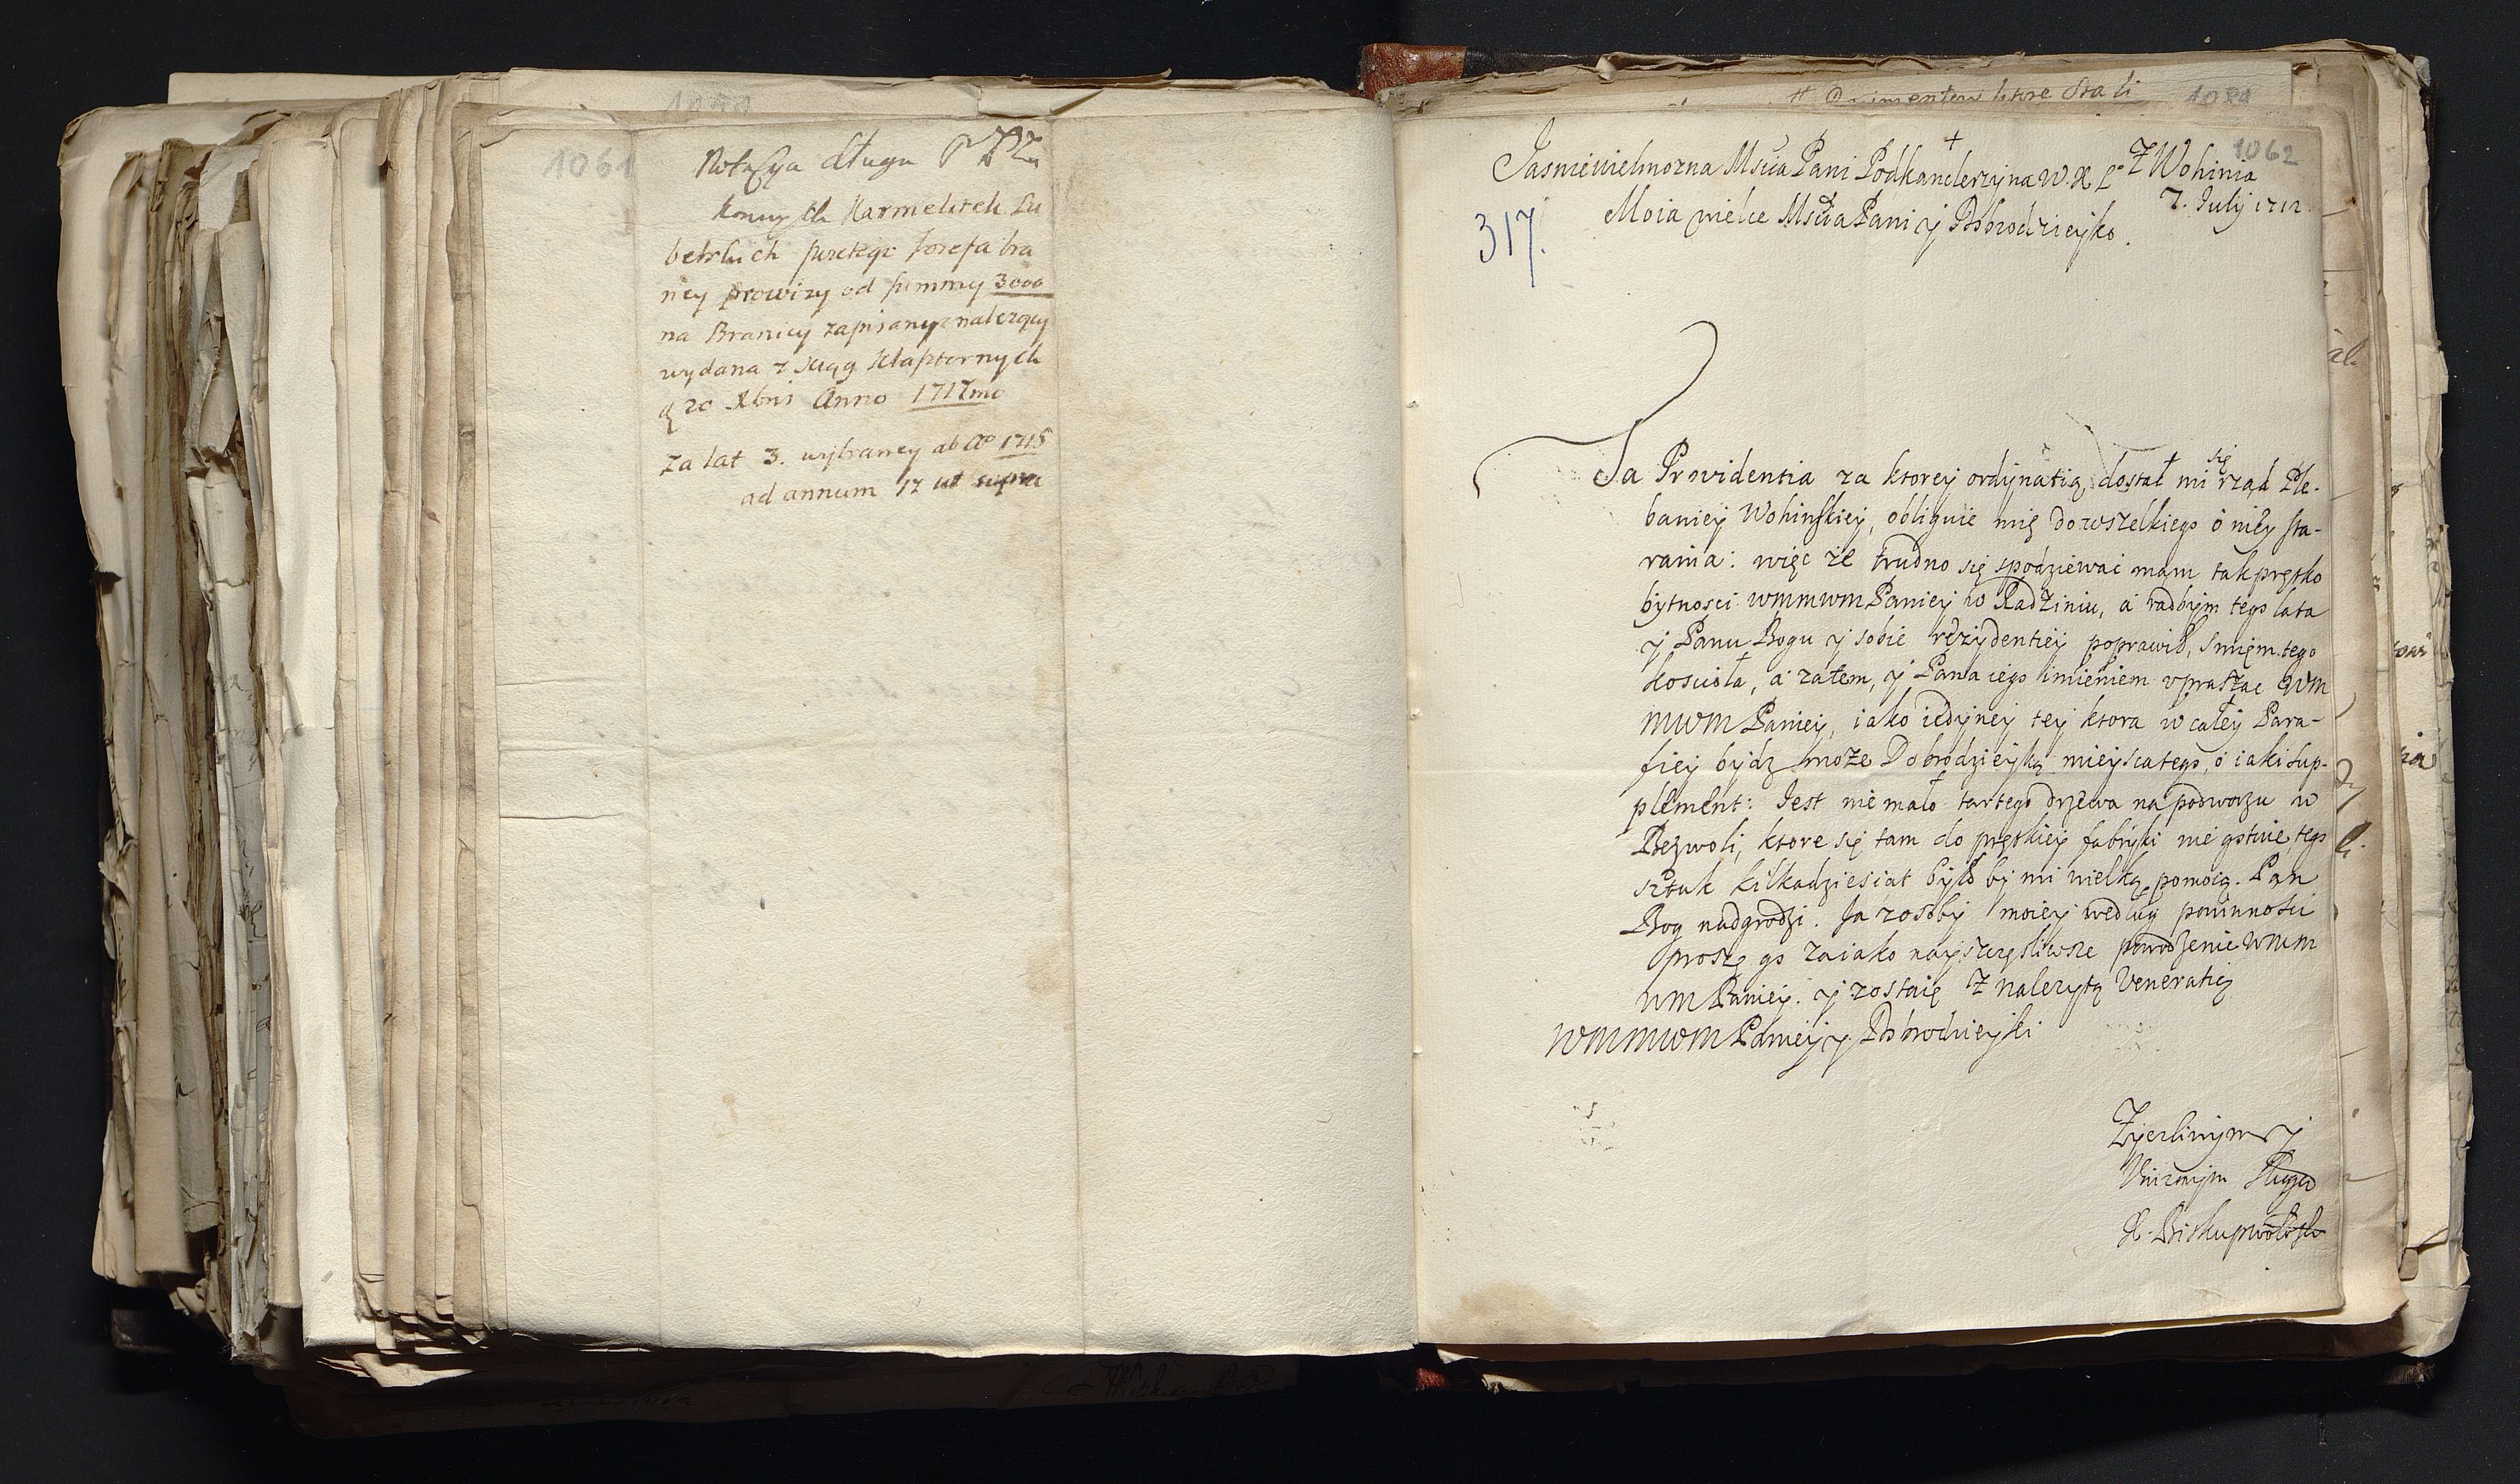 1061
Notacya długu
konnych Karmelitek Lu
belskich swietego Jozefa bra
ney prowizy od summy 3000
na Branicy zapisany nalezący
wydana z xiąg klasztornych
d 20 Xbris Anno 1717mo
Za lat 3. wybraney ab Ao 1715
ad annum 17 ut supra
ktore
1084
1062
+
Jasniewielmozna Mscia Pani Podkanclerzyna W. X L.
Z Wohinia
7. July 1712.
Moia wielce Mscia Pani y Dobrodzieyko.
317.
Ta Providentia za ktorey ordynatią dostał mi się rząd Ple-
baniey Wohinskiey, obliguie mię do wszelkiego o niey sta-
rania: więc ze trudno się spodziewać mąm tak prętko
bytnosci WMMWM Paniey w Radziniu, a radbym tego lata
y Panu Bogu y sobie rezydentiey poprawił, smięm tego
kosciołа, a zatem, y Pana iego imieniem upraszac WM
MWM Paniey, iako iedyney tey ktora w całey Para-
fiey bydz moze Dobrodzieyką mieysca tego, o iaki sup-
plement: Jest nie mało tartego drzewa na podworzu w
Bezwoli, ktore się tam do prętkiey fabryki nie gotuie, tego
sztuk kilkadziesiat było by mi wielką pomocą. Pąn
Bog nadgrodzi. Ja z osoby moiey według powinnosci
proszę go za iako nayszczęsliwsze powodzenie WMM
WM Paniey. y zostaię z nalezytą Veneratią
WMMWM Paniey y Dobrodzieyki
Zyczliwym y
Unizonym Sługą
X. Biskup